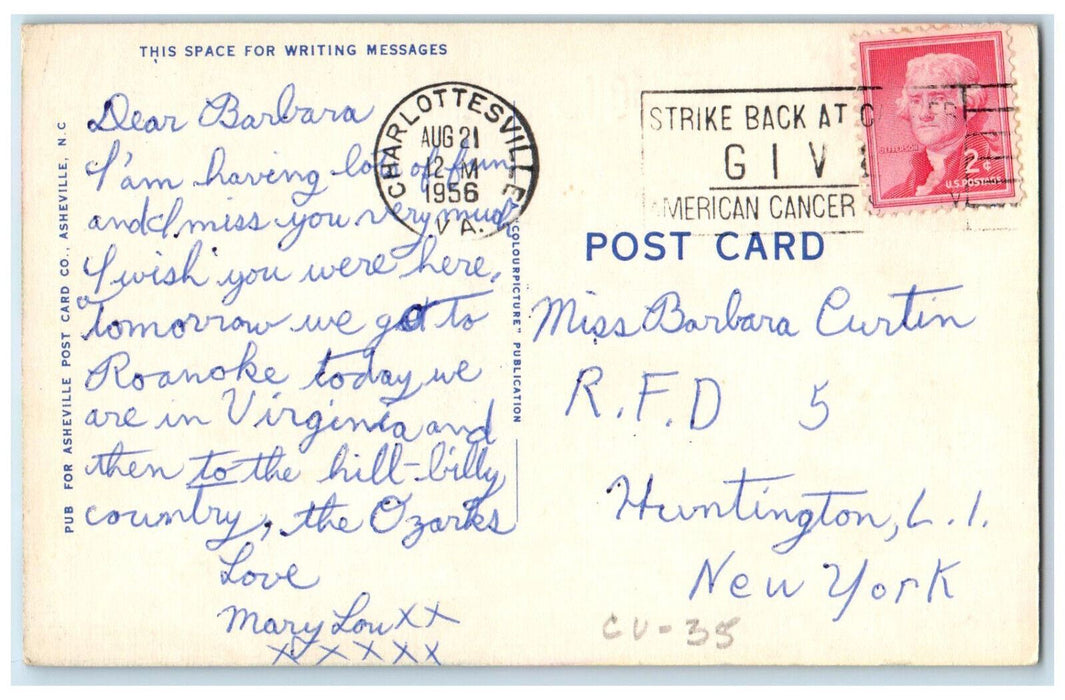 THIS SPACE FOR WRITING MESSAGES
Dear Barbara
I'am having lots of fun
and I miss you very much
I wish you were here.
tomorrow we go to
Roanoke today we
are in Virginia and
then to the hill-billy
country, the Ozarks
Love
Mary Lou XX
XXXXXX
PUB FOR ASHEVILLE POST CARD CO., ASHEVILLE, N.C
"COLOURPICTURE" PUBLICATION
CHARLOTTESVILLE
AUG 21
12 M
1956
VA.
STRIKE BACK AT
GIV
AMERICAN CANCER
JEFFERSON
2¢
U.S. POSTAGE
POST CARD
Miss Barbara Curtin
R.F.D 5
Huntington, L.I.
New York
CU-35